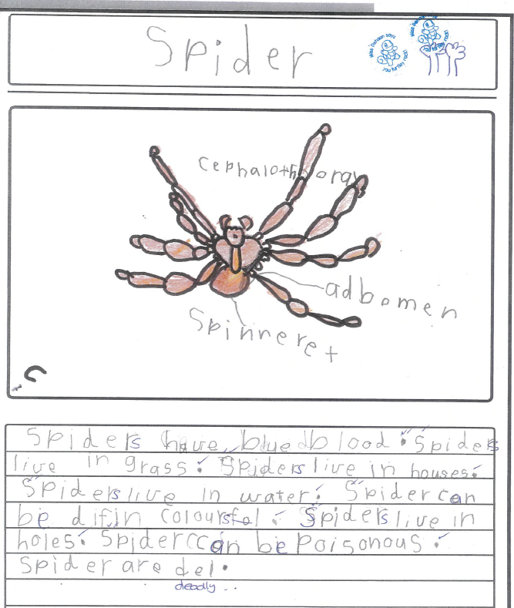 Spider
Cephalothorax
adbomen
Spinneret
Spiders have blued blood. Spiders
live in grass. Spiders live in houses.
Spiders live in water. Spider can
be difin coloursfol. Spiders live in
holes. Spider ccan be Poisonous.
Spider are del.
deadly